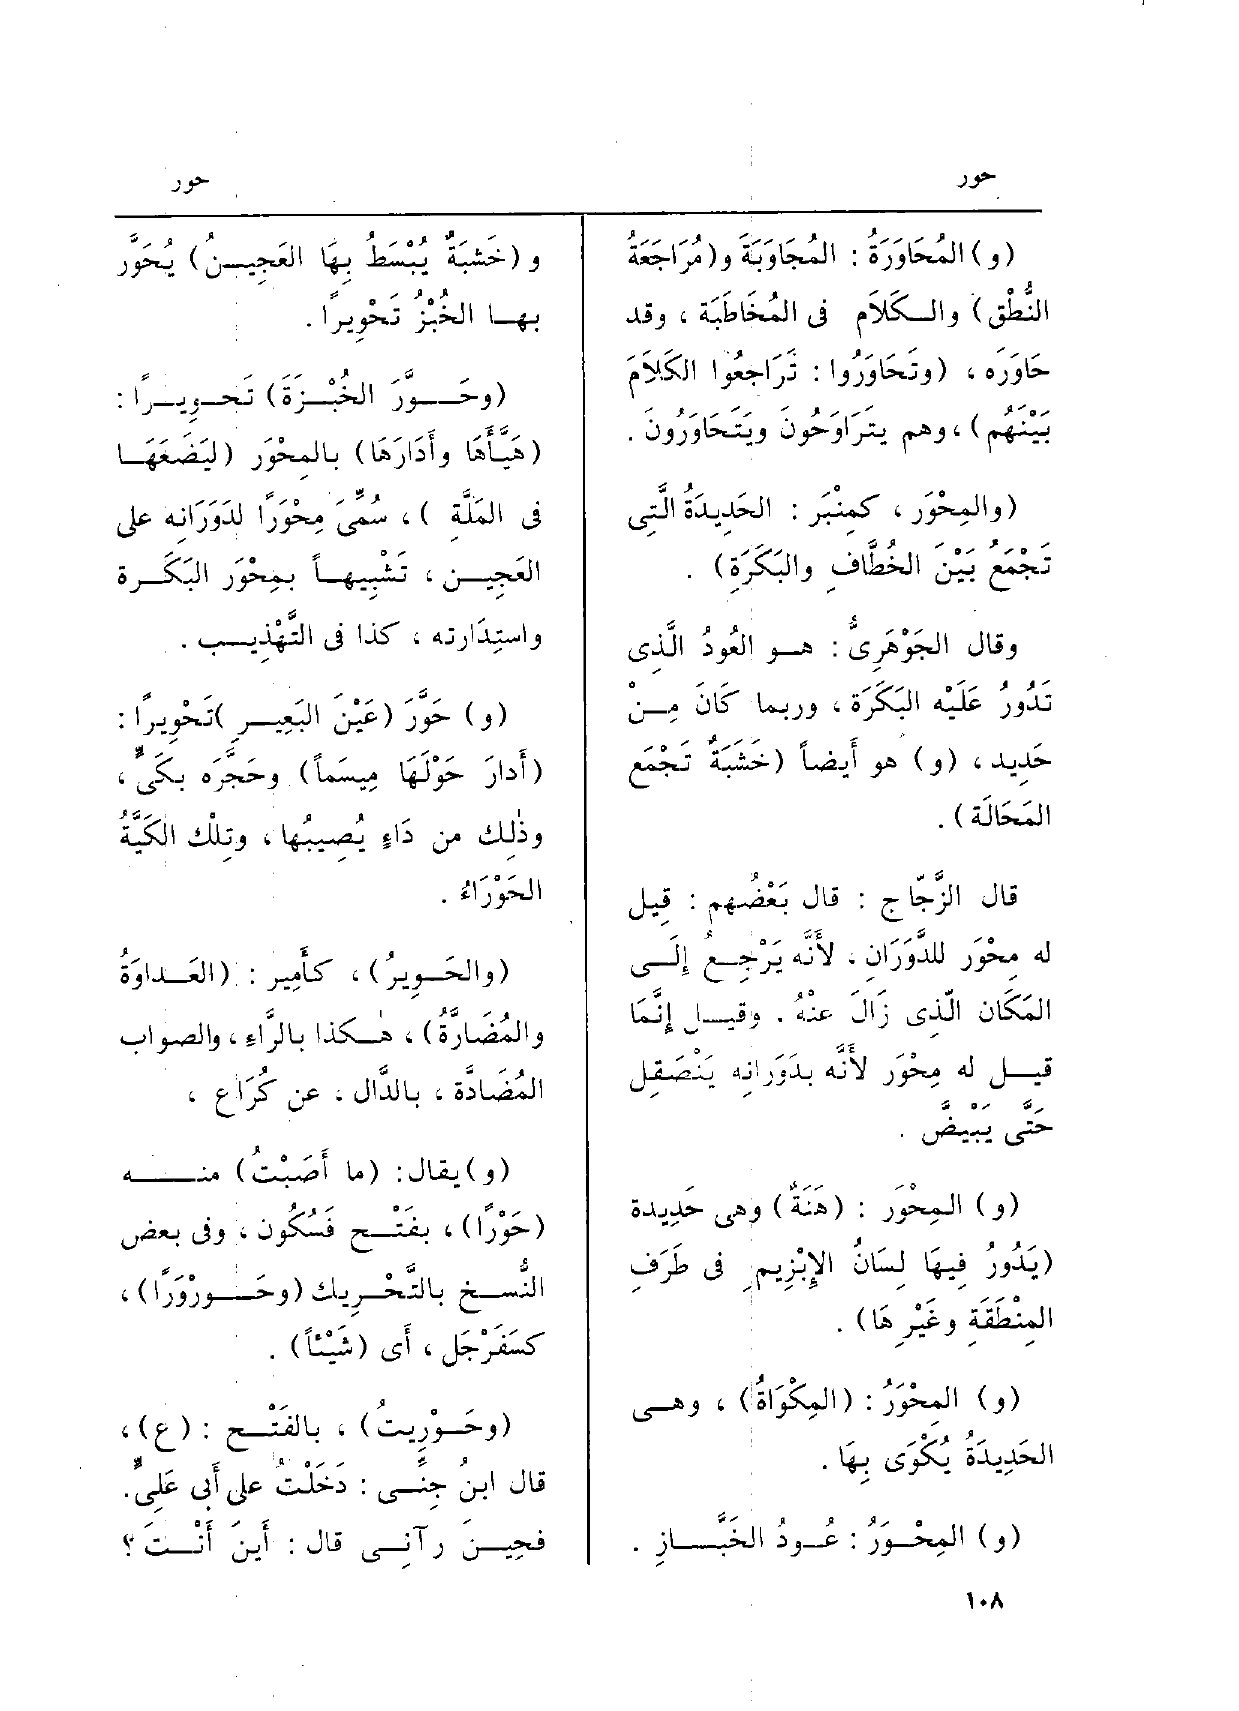 حور
حور
(و) المُحَاوَرَةُ : المُجَاوَبَة و(مُرَاجَعَةُ
النُّطْقِ) والـكَلَام فى المُخَاطَبَة ، وقد
حَاوَرَه ، (وتَحَاوَرُوا : تَرَاجَعُوا الكَلَامَ
بَيْنَهُم) ، وهم يتَرَاوَحُونَ ويَتَحَاوَرُونَ .
(والمِحْوَر ، كمِنْبَر : الحَدِيدَةُ الَّتِى
تَجْمَعُ بَيْنَ الخُطَّافِ والبَكَرَةِ) .
وقال الجَوْهَرِىُّ : هـو العُودُ الَّذِى
تَدُورُ عَلَيْه البَكَرَة ، وربما كَانَ مِـنْ
حَدِيد ، (و) هو أَيضاً (خَشَبَةٌ تَجْمَع
المَحَالَة) .
قال الزَّجّاج : قال بَعْضُهم : قِيل
له مِحْوَر للدَّوَرَانِ ، لأَنَّه يَرْجِـعُ إِلَـى
المَكَان الَّذِى زَالَ عنْهُ . وقيـل إِنَّمَا
قيـل له مِحْوَر لأَنَّه بدَوَرَانِه يَنْصَقِل
حَتَّى يَبْيَضَّ .
(و) المِحْوَر : (هَنَةٌ) وهى حَدِيدة
(يَدُورُ فِيهَا لِسَانُ الإِبْزِيمِ فى طَرَفِ
المِنْطَقَةِ وغَيْرِهَا) .
(و) المِحْوَرُ : (المِكْوَاةُ) ، وهـى
الحَدِيدَةُ يُكْوَى بِهَا .
(و) المِحْـوَرُ : عُـودُ الخَبَّـازِ .
و (خَشَبَةٌ يُبْسَطُ بِهَا العَجِيـنُ) يُحَوَّر
بهـا الخُبْزُ تَحْوِيرًا .
(وحَــوَّرَ الخُبْـزَةَ) تَحـوِيـرًا :
(هَيَّأَهَا وأَدَارَهَا) بالمِحْوَر (ليَضَعَهَـا
فى المَلَّة ) ، سُمِّىَ مِحْوَرًا لدَوَرَانِه على
العَجِيـن ، تَشْبِيهـاً بمِحْوَر البَكَـرة
واستِدَارَته ، كذا فى التَّهْذِيـب .
(و) حَوَّرَ (عَيْنَ البَعِيـر )تَحْوِيرًا :
(أَدارَ حَوْلَهَا مِيسَماً) وحَجَّرَه بكَىٍّ ،
وذٰلِك من دَاءٍ يُصِيبُها ، وتِلْك الكَيَّةُ
الحَوْرَاءُ .
(والحَـوِيرُ) ، كأَمِير : (العَـداوَةُ
والمُضَارَّةُ) ، هٰـكذا بالرَّاء ، والصواب
المُضَادَّة ، بالدَّال ، عن كُرَاع ،
(و)يقال: (ما أَصَبْتُ) منـــه
(حَوْرًا) ، بفَتْـح فَسُكُون ، وفى بعض
النُّسـخ بالتَّحْرِيك (وحَــوَرْوَرًا) ،
كسَفَرْجَل ، أَى (شَيْئاً) .
(وحَـوْرِيتُ) ، بالفَتْـح : (ع) ،
قال ابنُ جِنِّـى : دَخَلْتُ على أَبى عَلِىٍّ.
فحِيـنَ رآنِـى قال : أَينَ أَنْـتَ ؟
١٠٨